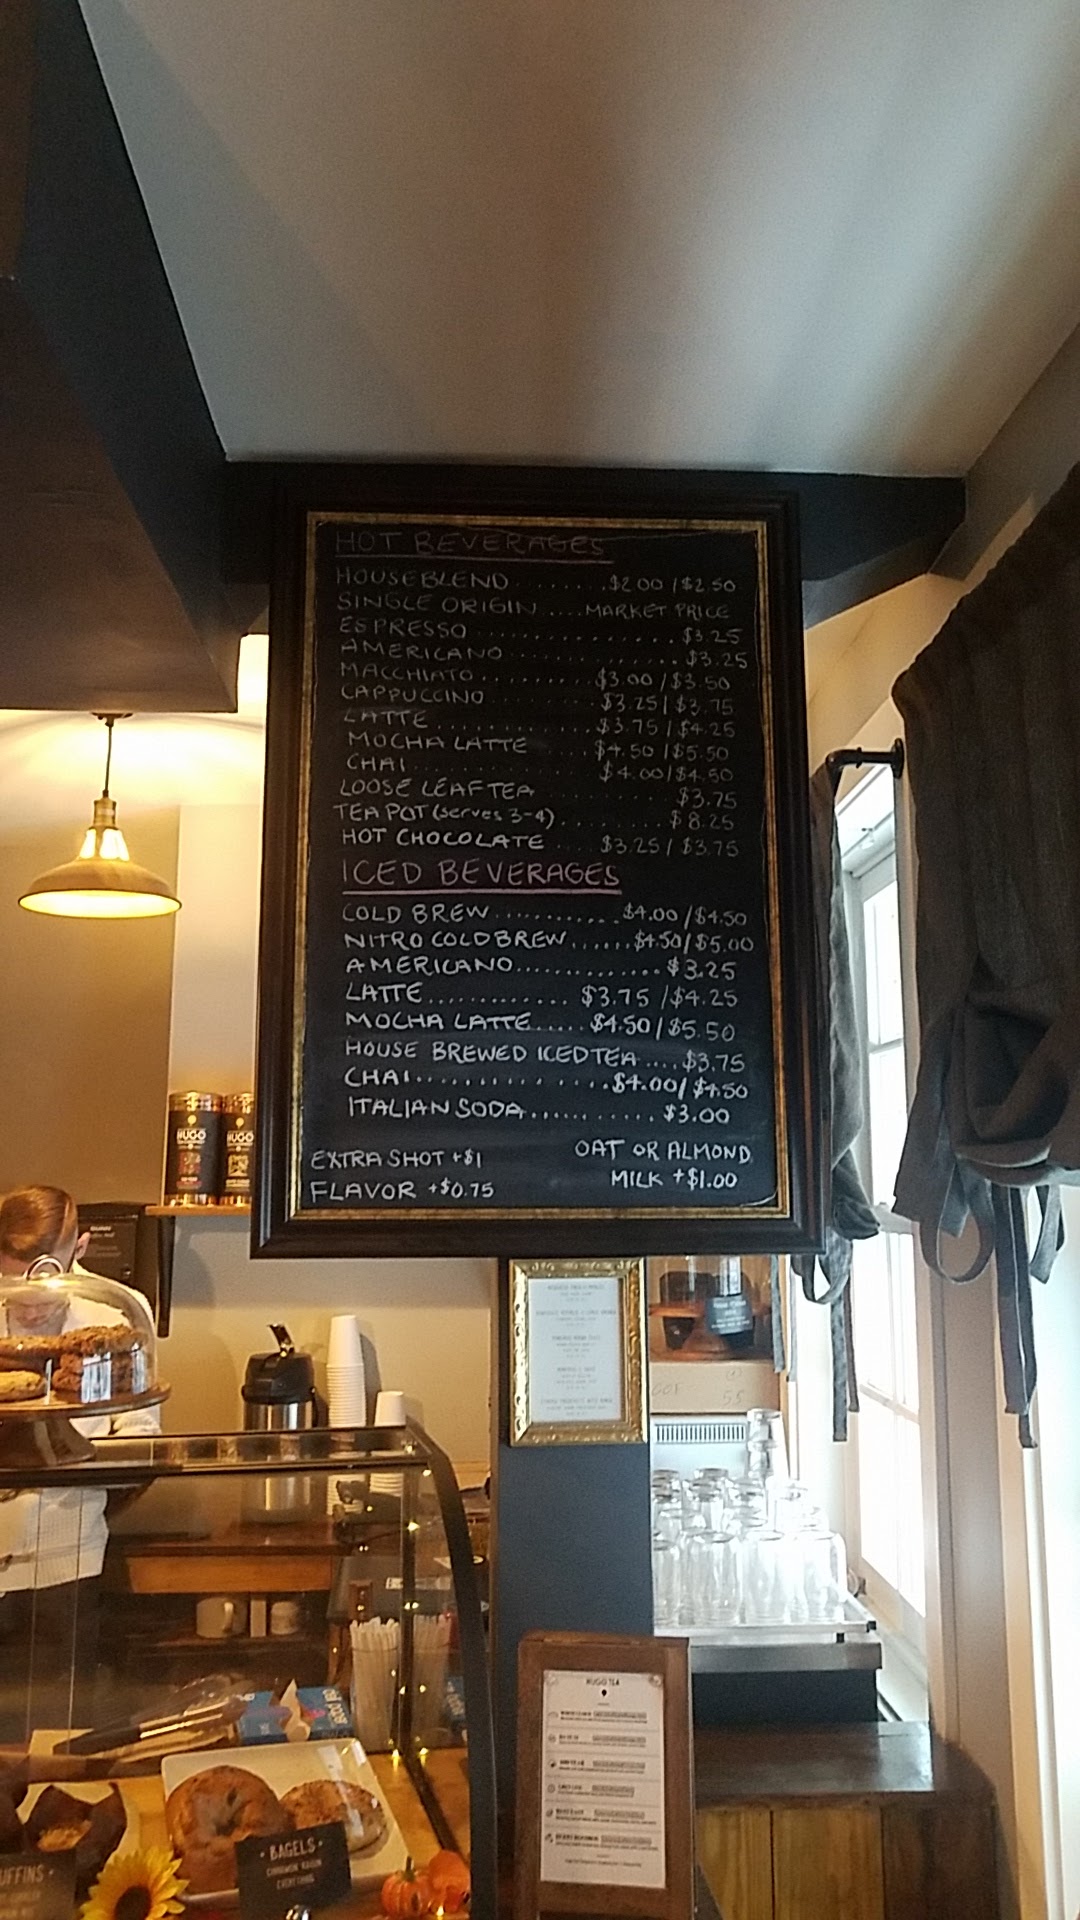 HOT BEVERAGES
HOUSE BLEND........$2.00/$2.50
SINGLE ORIGIN....MARKET PRICE
ESPRESSO................$3.25
AMERICANO..............$3.25
MACCHIATO.........$3.00/$3.50
CAPPUCCINO........$3.25/$3.75
LATTE............$3.75/$4.25
MOCHA LATTE....$4.50/$5.50
CHAI............$4.00/$4.50
LOOSE LEAF TEA........$3.75
TEA POT (serves 3-4).........$8.25
HOT CHOCOLATE....$3.25/$3.75
ICED BEVERAGES
COLD BREW............$4.00/$4.50
NITRO COLD BREW......$4.50/$5.00
AMERICANO..............$3.25
LATTE............$3.75/$4.25
MOCHA LATTE.....$4.50/$5.50
HOUSE BREWED ICED TEA....$3.75
CHAI..............$4.00/$4.50
ITALIAN SODA...........$3.00
EXTRA SHOT +$1
FLAVOR +$0.75
OAT OR ALMOND
MILK +$1.00
HUGO
HUGO
HUGO TEA
• BAGELS •
CINNAMON RAISIN
EVERYTHING
UFFINS